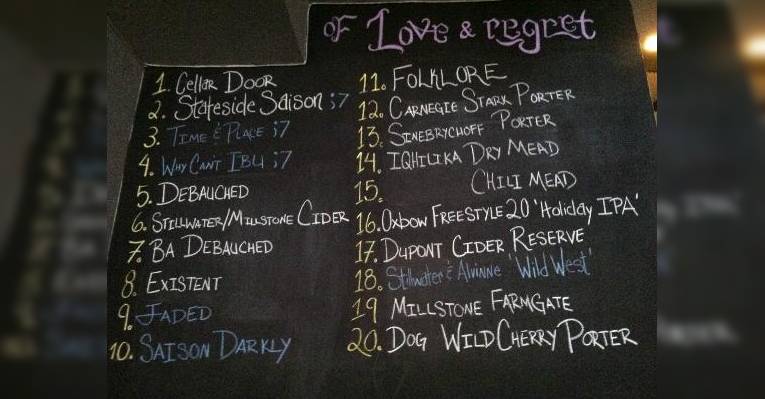 OF LOVE & REGRET
1. CELLAR DOOR
2. STATESIDE SAISON ;7
3. TIME & PLACE ;7
4. WHY CAN'T IBU ;7
5. DEBAUCHED
6. STILLWATER/MILLSTONE CIDER
7. BA DEBAUCHED
8. EXISTENT
9. JADED
10. SAISON DARKLY
11. FOLKLORE
12. CARNEGIE STARK PORTER
13. SINEBRYCHOFF PORTER
14. IQHILIKA DRY MEAD
15. CHILI MEAD
16. OXBOW FREESTYLE 20 'Holiday IPA'
17. DUPONT CIDER RESERVE
18. Stillwater & Alvinne 'Wild West'
19 MILLSTONE FARMGATE
20. DOG WILD CHERRY PORTER